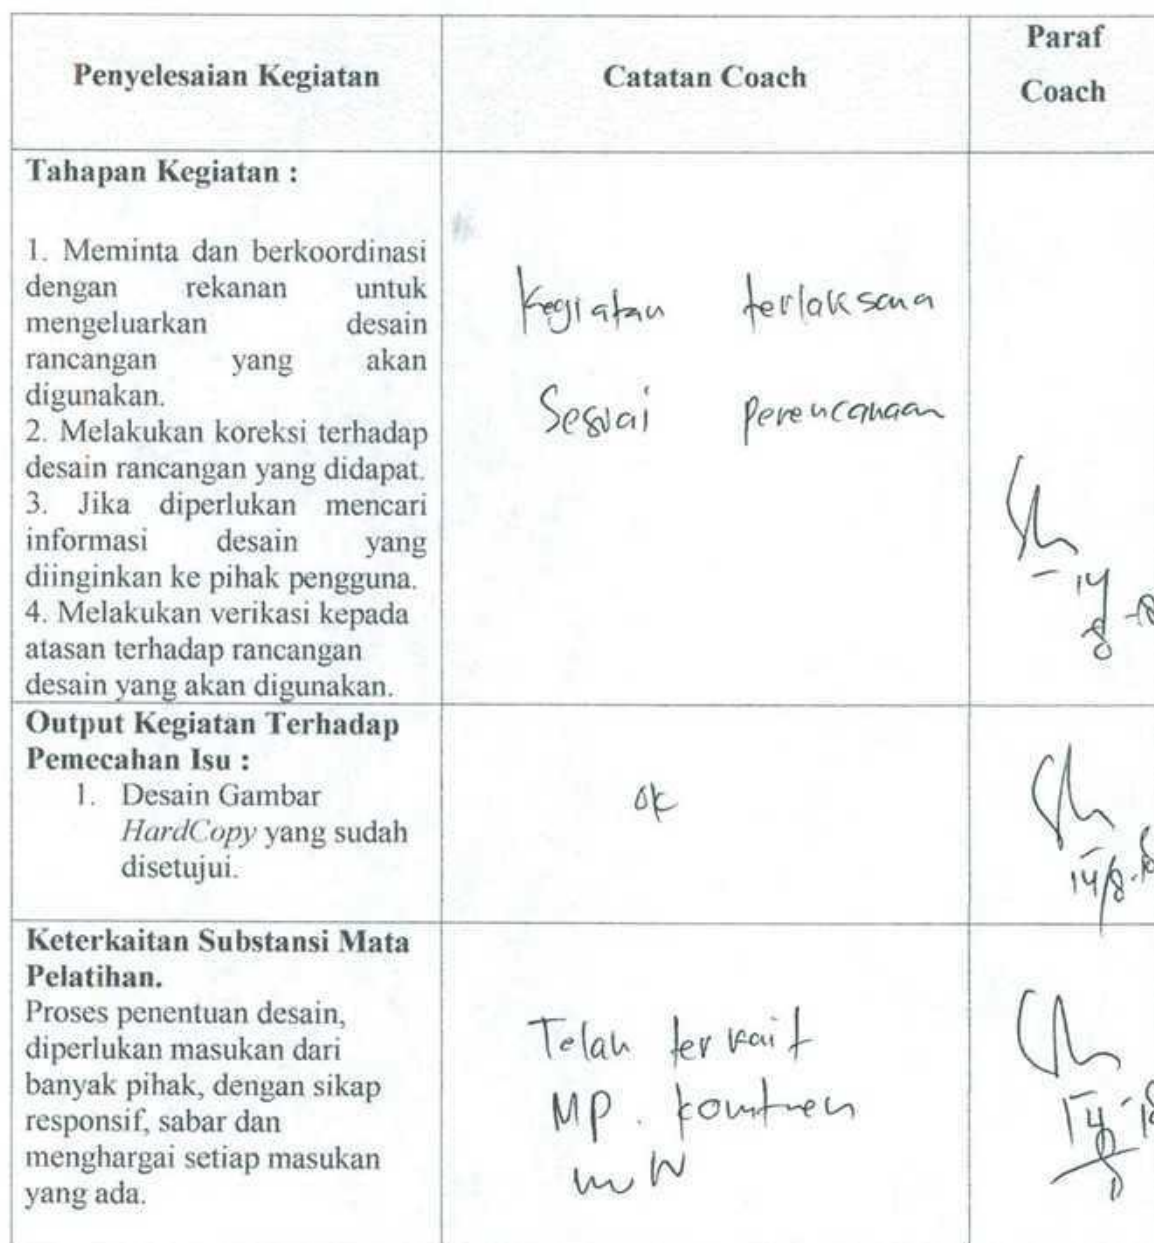 Penyelesaian Kegiatan
Catatan Coach
Paraf
Coach
Tahapan Kegiatan :
1. Meminta dan berkoordinasi
dengan rekanan untuk
mengeluarkan desain
rancangan yang akan
digunakan.
2. Melakukan koreksi terhadap
desain rancangan yang didapat.
3. Jika diperlukan mencari
informasi desain yang
diinginkan ke pihak pengguna.
4. Melakukan verikasi kepada
atasan terhadap rancangan
desain yang akan digunakan.
Kegiatan terlaksana
Sesuai perencanaan
14
8 -18
Output Kegiatan Terhadap
Pemecahan Isu :
1. Desain Gambar
HardCopy yang sudah
disetujui.
ok
14/8.18
Keterkaitan Substansi Mata
Pelatihan.
Proses penentuan desain,
diperlukan masukan dari
banyak pihak, dengan sikap
responsif, sabar dan
menghargai setiap masukan
yang ada.
Telah terkait
MP. komitmen
14-18
8